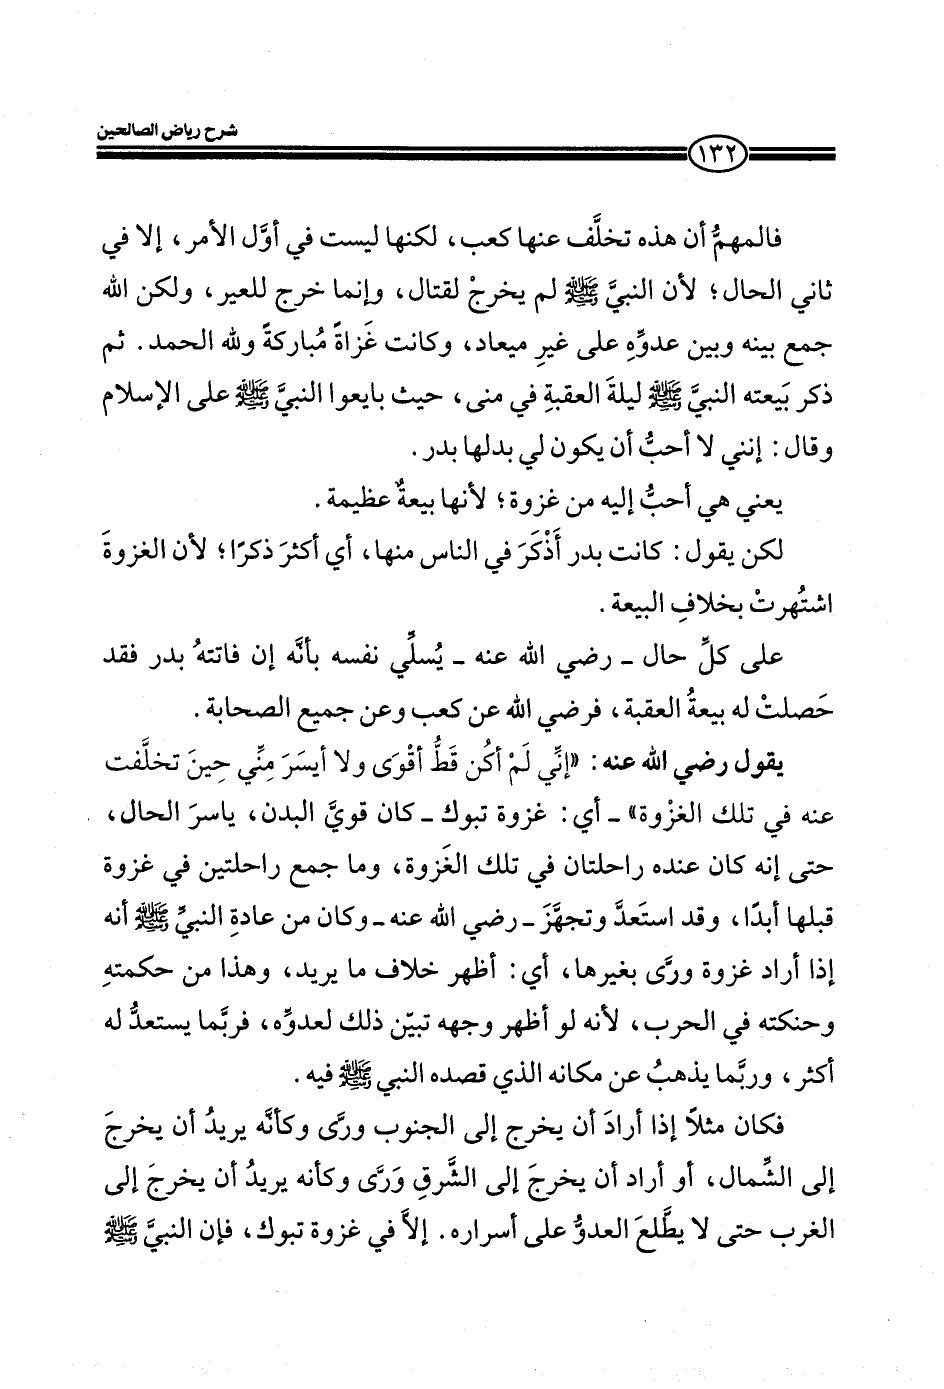 شرح رياض الصالحين
١٣٢
فالمهمُّ أن هذه تخلَّف عنها كعب، لكنها ليست في أوَّل الأمر، إلا في
ثاني الحال؛ لأن النبيَّ ﷺ لم يخرجْ لقتال، وإنما خرج للعير، ولكن الله
جمع بينه وبين عدوِّهِ على غيرِ ميعاد، وكانت غَزاةً مُباركةً ولله الحمد. ثم
ذكر بَيعته النبيَّ ﷺ ليلةَ العقبةِ في منى، حيث بايعوا النبيَّ ﷺ على الإسلام
وقال: إنني لا أحبُّ أن يكون لي بدلها بدر.
يعني هي أحبُّ إليه من غزوة؛ لأنها بيعةٌ عظيمة.
لكن يقول: كانت بدر أَذْكَرَ في الناس منها، أي أكثرَ ذكرًا؛ لأن الغزوةَ
اشتُهرتْ بخلافِ البيعة.
على كلِّ حال ـ رضي الله عنه ـ يُسلِّي نفسه بأنَّه إن فاتتهُ بدر فقد
حَصلتْ له بيعةُ العقبة، فرضي الله عن كعب وعن جميع الصحابة.
يقول رضي الله عنه: «إنِّي لَمْ أكُن قَطُّ أقْوَى ولا أيسَرَ مِنِّي حِينَ تخلَّفت
عنه في تلك الغزْوة» ـ أي: غزوة تبوك ـ كان قويَّ البدن، ياسرَ الحال،
حتى إنه كان عنده راحلتان في تلك الغَزوة، وما جمع راحلتين في غزوة
قبلها أبدًا، وقد استَعدَّ وتجهَّزَ ـ رضي الله عنه ـ وكان من عادةِ النبيِّ ﷺ أنه
إذا أراد غزوة ورَّى بغيرها، أي: أظهر خلاف ما يريد، وهذا من حكمتهِ
وحنكته في الحرب، لأنه لو أظهر وجهه تبيّن ذلك لعدوِّه، فربَّما يستعدُّ له
أكثر، وربَّما يذهبُ عن مكانه الذي قصده النبي ﷺ فيه.
فكان مثلاً إذا أرادَ أن يخرج إلى الجنوب ورَّى وكأنَّه يريدُ أن يخرجَ
إلى الشِّمال، أو أراد أن يخرجَ إلى الشَّرقِ وَرَّى وكأنه يريدُ أن يخرجَ إلى
الغرب حتى لا يطَّلعَ العدوُّ على أسراره. إلاَّ في غزوة تبوك، فإن النبيَّ ﷺ